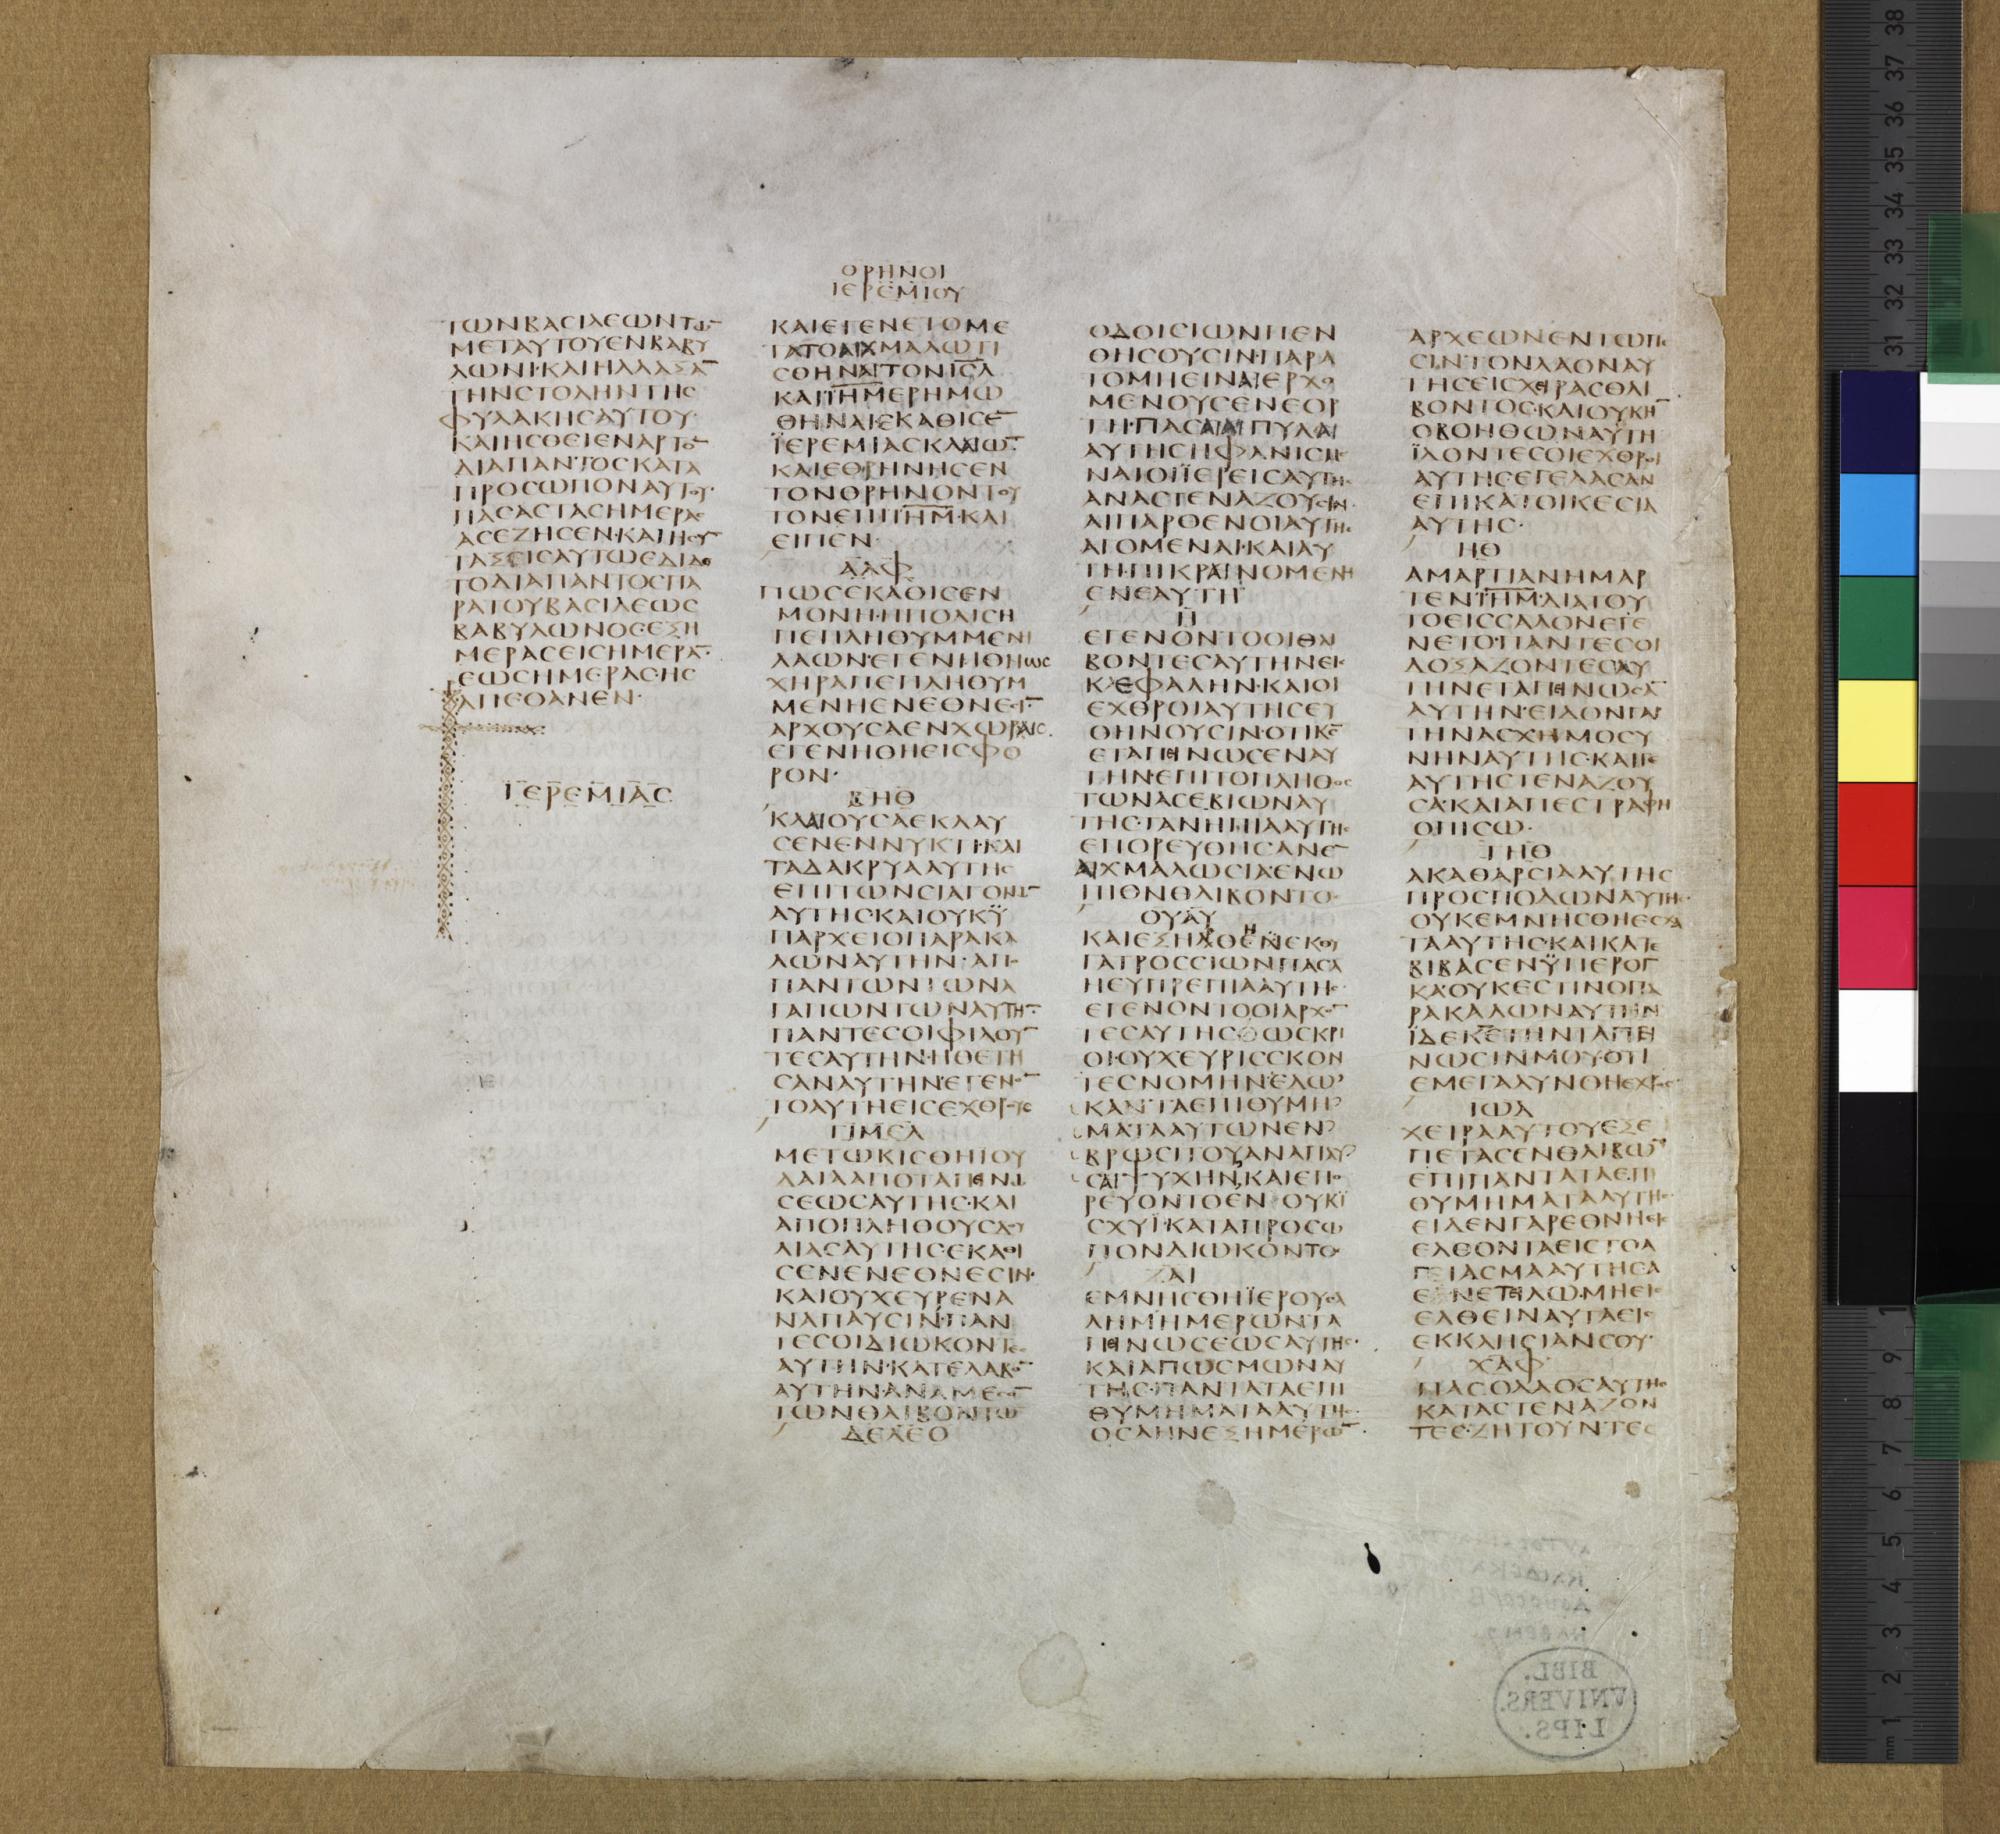 ΤΩΝΒΑCΙΛΕΩΝΤΩ̅
ΜΕΤΑΥΤΟΥΕΝΒΑΒΥ
ΛΩΝΙ·ΚΑΙΗΛΛΑΞΑ̅
ΤΗΝCΤΟΛΗΝΤΗC
ΦΥΛΑΚΗCΑΥΤΟΥ·
ΚΑΙΗCΘΕΙΕΝΑΡΤΟ̅
ΔΙΑΠΑΝΤΟCΚΑΤΑ
ΠΡΟCΩΠΟΝΑΥΤΟΥ·
ΠΑCΑCΤΑCΗΜΕΡΑC
ΑCΕΖΗCΕΝ·ΚΑΙΗCΥ̅
ΤΑΞΕΙCΑΥΤΩΕΔΙΔΟ
ΤΟΔΙΑΠΑΝΤΟCΠΑ
ΡΑΤΟΥΒΑCΙΛΕΩC
ΒΑΒΥΛΩΝΟCΕΞΗ
ΜΕΡΑCΕΙCΗΜΕΡΑ̅·
ΕΩCΗΜΕΡΑCΗC
ΑΠΕΘΑΝΕΝ·
ΙΕΡΕΜΙΑC
ΘΡΗΝΟΙ
ΙΕΡΕΜΙΟΥ
ΚΑΙΕΓΕΝΕΤΟΜΕ
ΤΑΤΟΑΙΧΜΑΛΩΤΙ
CΘΗΝΑΙΤΟΝΙ̅C̅Λ̅
ΚΑΙΙ̅Η̅Μ̅ΕΡΗΜΩ
ΘΗΝΑΙ·ΕΚΑΘΙCΕ̅
ΪΕΡΕΜΙΑCΚΛΑΙΩ̅·
ΚΑΙΕΘΡΗΝΗCΕΝ
ΤΟΝΘΡΗΝΟΝΤΟΥ
ΤΟΝΕΠΙΙ̅Η̅Μ̅·ΚΑΙ
ΕΙΠΕΝ·
ΑΛΦ
ΠΩCΕΚΑΘΙCΕΝ
ΜΟΝΗ·ΗΠΟΛΙCΗ
ΠΕΠΛΗΘΥΜΜΕΝΗ
ΛΑΩΝ·ΕΓΕΝΗΘΗΩC
ΧΗΡΑΠΕΠΛΗΘΥΜ
ΜΕΝΗΕΝΕΘΝΕCΙ̅·
ΑΡΧΟΥCΑΕΝΧΩΡΑΙC·
ΕΓΕΝΗΘΗΕΙCΦΟ
ΡΟΝ·
ΒΗΘ
ΚΛΑΙΟΥCΑΕΚΛΑΥ
CΕΝΕΝΝΥΚΤΙ·ΚΑΙ
ΤΑΔΑΚΡΥΑΑΥΤΗC
ΕΠΙΤΩΝCΙΑΓΟΝΩ̅
ΑΥΤΗCΚΑΙΟΥΚΫ
ΠΑΡΧΕΙΟΠΑΡΑΚΑ
ΛΩΝΑΥΤΗΝ·ΑΠΟ
ΠΑΝΤΩΝΤΩΝΑ
ΓΑΠΩΝΤΩΝΑΥΤΗ̅·
ΠΑΝΤΕCΟΙΦΙΛΟΥ̅
ΤΕCΑΥΤΗΝ·ΗΘΕΤΗ
CΑΝΑΥΤΗΝ·ΕΓΕΝΟ̅
ΤΟΑΥΤΗΕΙCΕΧΘΡΟΥC
ΓΙΜΕΛ
ΜΕΤΩΚΙCΘΗΙΟΥ
ΔΑΙΑΑΠΟΤΑΠΕΙΝΩ
CΕΩCΑΥΤΗC·ΚΑΙ
ΑΠΟΠΛΗΘΟΥCΔΟΥ
ΛΙΑCΑΥΤΗC·ΕΚΑΘΙ
CΕΝΕΝΕΘΝΕCΙΝ·
ΚΑΙΟΥΧΕΥΡΕΝΑ
ΝΑΠΑΥCΙΝ·ΠΑΝ
ΤΕCΟΙΔΙΩΚΟΝΤΕC
ΑΥΤΗΝ·ΚΑΤΕΛΑΒΟ̅
ΑΥΤΗΝ·ΑΝΑΜΕCΟ̅
ΤΩΝΘΛΙΒΟΝΤΩ̅
ΔΕΛΕΘ
ΟΔΟΙCΙΩΝΠΕΝ
ΘΗCΟΥCΙΝ·ΠΑΡΑ
ΤΟΜΗΕΙΝΑΙΕΡΧΟ
ΜΕΝΟΥCΕΝΕΟΡ
ΤΗ·ΠΑCΑΙΑΙΠΥΛΑΙ
ΑΥΤΗCΗΦΑΝΙCΜΕ
ΝΑΙΟΙΪΕΡΕΙCΑΥΤΗC
ΑΝΑCΤΕΝΑΖΟΥCΙΝ·
ΑΙΠΑΡΘΕΝΟΙΑΥΤΗC
ΑΓΟΜΕΝΑΙ·ΚΑΙΑΥ
ΤΗ·ΠΙΚΡΑΙΝΟΜΕΝΗ
ΕΝΕΑΥΤΗ
Η
ΕΓΕΝΟΝΤΟΟΙΘΛΙ
ΒΟΝΤΕCΑΥΤΗΝΕΙC
ΚΕΦΑΛΗΝ·ΚΑΙΟΙ
ΕΧΘΡΟΙΑΥΤΗCΕΥ
ΘΗΝΟΥCΙΝ·ΟΤΙΚ̅C̅
ΕΤΑΠΕΙΝΩCΕΝΑΥ
ΤΗΝ·ΕΠΙΤΟΠΛΗΘΟC
ΤΩΝΑCΕΒΙΩΝΑΥ
ΤΗC·ΤΑΝΗΠΙΑΑΥΤΗC
ΕΠΟΡΕΥΘΗCΑΝΕ̅
ΑΙΧΜΑΛΩCΙΑ·ΕΝΩ
ΠΙΟΝΘΛΙΒΟΝΤΟC
ΟΥΑΥ
ΚΑΙΕΞΗΡΘΗΕΚΘΥ
ΓΑΤΡΟCCΙΩΝΠΑCΑ
ΗΕΥΠΡΕΠΙΑΑΥΤΗC·
ΕΓΕΝΟΝΤΟΟΙΑΡΧΟ̅
ΤΕCΑΥΤΗC·ΩCΚΡΙ
ΟΙ·ΟΥΧΕΥΡΙCCΚΟΝ
ΤΕCΝΟΜΗΝ·ΕΔΩ
ΚΑΝΤΑΕΠΙΘΥΜΗ
ΜΑΤΑΑΥΤΩΝΕΝ
ΒΡΩCΙΤΟΥΑΝΑΠΑΥ
CΑΙΨΥΧΗΝ·ΚΑΙΕΠΟ
ΡΕΥΟΝΤΟΕΝΟΥΚΪ
CΧΥΪ·ΚΑΤΑΠΡΟCΩ
ΠΟΝΔΙΩΚΟΝΤΟC
ΖΑΙ
ΕΜΝΗCΘΗΪΕΡΟΥCΑ
ΛΗΜΗΜΕΡΩΝΤΑ
ΠΕΙΝΩCΕΩCΑΥΤΗC·
ΚΑΙΑΠΩCΜΩΝΑΥ
ΤΗC·ΠΑΝΤΑΤΑΕΠΙ
ΘΥΜΗΜΑΤΑΑΥΤΗC·
ΟCΑΗΝΕΞΗΜΕΡΩ̅
ΑΡΧΕΩΝΕΝΤΩΠΕ
CΙΝΤΟΝΛΑΟΝΑΥ
ΤΗCΕΙCΧΕΙΡΑCΘΛΙ
ΒΟΝΤΟC·ΚΑΙΟΥΚΗ̅
ΟΒΟΗΘΩΝΑΥΤΗ
ΪΔΟΝΤΕCΟΙΕΧΘΡΟΙ
ΑΥΤΗCΕΓΕΛΑCΑΝ
ΕΠΙΚΑΤΟΙΚΕCΙΑ
ΑΥΤΗC·
ΗΘ
ΑΜΑΡΤΙΑΝΗΜΑΡ
ΤΕΝΙ̅Η̅Μ̅·ΔΙΑΤΟΥ
ΤΟΕΙCCΑΛΟΝΕΓΕ
ΝΕΤΟ·ΠΑΝΤΕCΟΙ
ΔΟΞΑΖΟΝΤΕCΑΥ
ΤΗΝΕΤΑΠΕΙΝΩCΑ̅
ΑΥΤΗΝ·ΕΙΔΟΝΓΑΡ
ΤΗΝΑCΧΗΜΟCΥ
ΝΗΝΑΥΤΗC·ΚΑΙΓΕ
ΑΥΤΗCΤΕΝΑΖΟΥ
CΑ·ΚΑΙΑΠΕCΤΡΑΦΗ
ΟΠΙCΩ·
ΤΗΘ
ΑΚΑΘΑΡCΙΑΑΥΤΗC
ΠΡΟCΠΟΔΩΝΑΥΤΗC·
ΟΥΚΕΜΝΗCΘΗΕCΧΑ
ΤΑΑΥΤΗC·ΚΑΙΚΑΤΕ
ΒΙΒΑCΕΝΫΠΕΡΟΓ
ΚΑ·ΟΥΚΕCΤΙΝΟΠΑ
ΡΑΚΑΛΩΝΑΥΤΗΝ
ΪΔΕΚ̅Ε̅ΤΗΝΤΑΠΕΙ
ΝΩCΙΝΜΟΥ·ΟΤΙ
ΕΜΕΓΑΛΥΝΘΗΕΧΘΡΟC
ΙΩΔ
ΧΕΙΡΑΑΥΤΟΥΕΞΕ
ΠΕΤΑCΕΝΘΛΙΒΩ̅
ΕΠΙΠΑΝΤΑΤΑΕΠΙ
ΘΥΜΗΜΑΤΑΑΥΤΗC·
ΕΙΔΕΝΓΑΡΕΘΝΗΕΙC
ΕΛΘΟΝΤΑΕΙCΤΟΑ
ΓΙΑCΜΑΑΥΤΗCΑ
ΕΝΕΤΕΙΛΩ·ΜΗΕΙC
ΕΛΘΕΙΝΑΥΤΑΕΙC
ΕΚΚΛΗCΙΑΝCΟΥ·
ΧΑΦ
ΠΑCΟΛΑΟCΑΥΤΗC
ΚΑΤΑCΤΕΝΑΖΟΝ
ΤΕC·ΖΗΤΟΥΝΤΕC
BIBL.
VNIVERS.
LIPS.